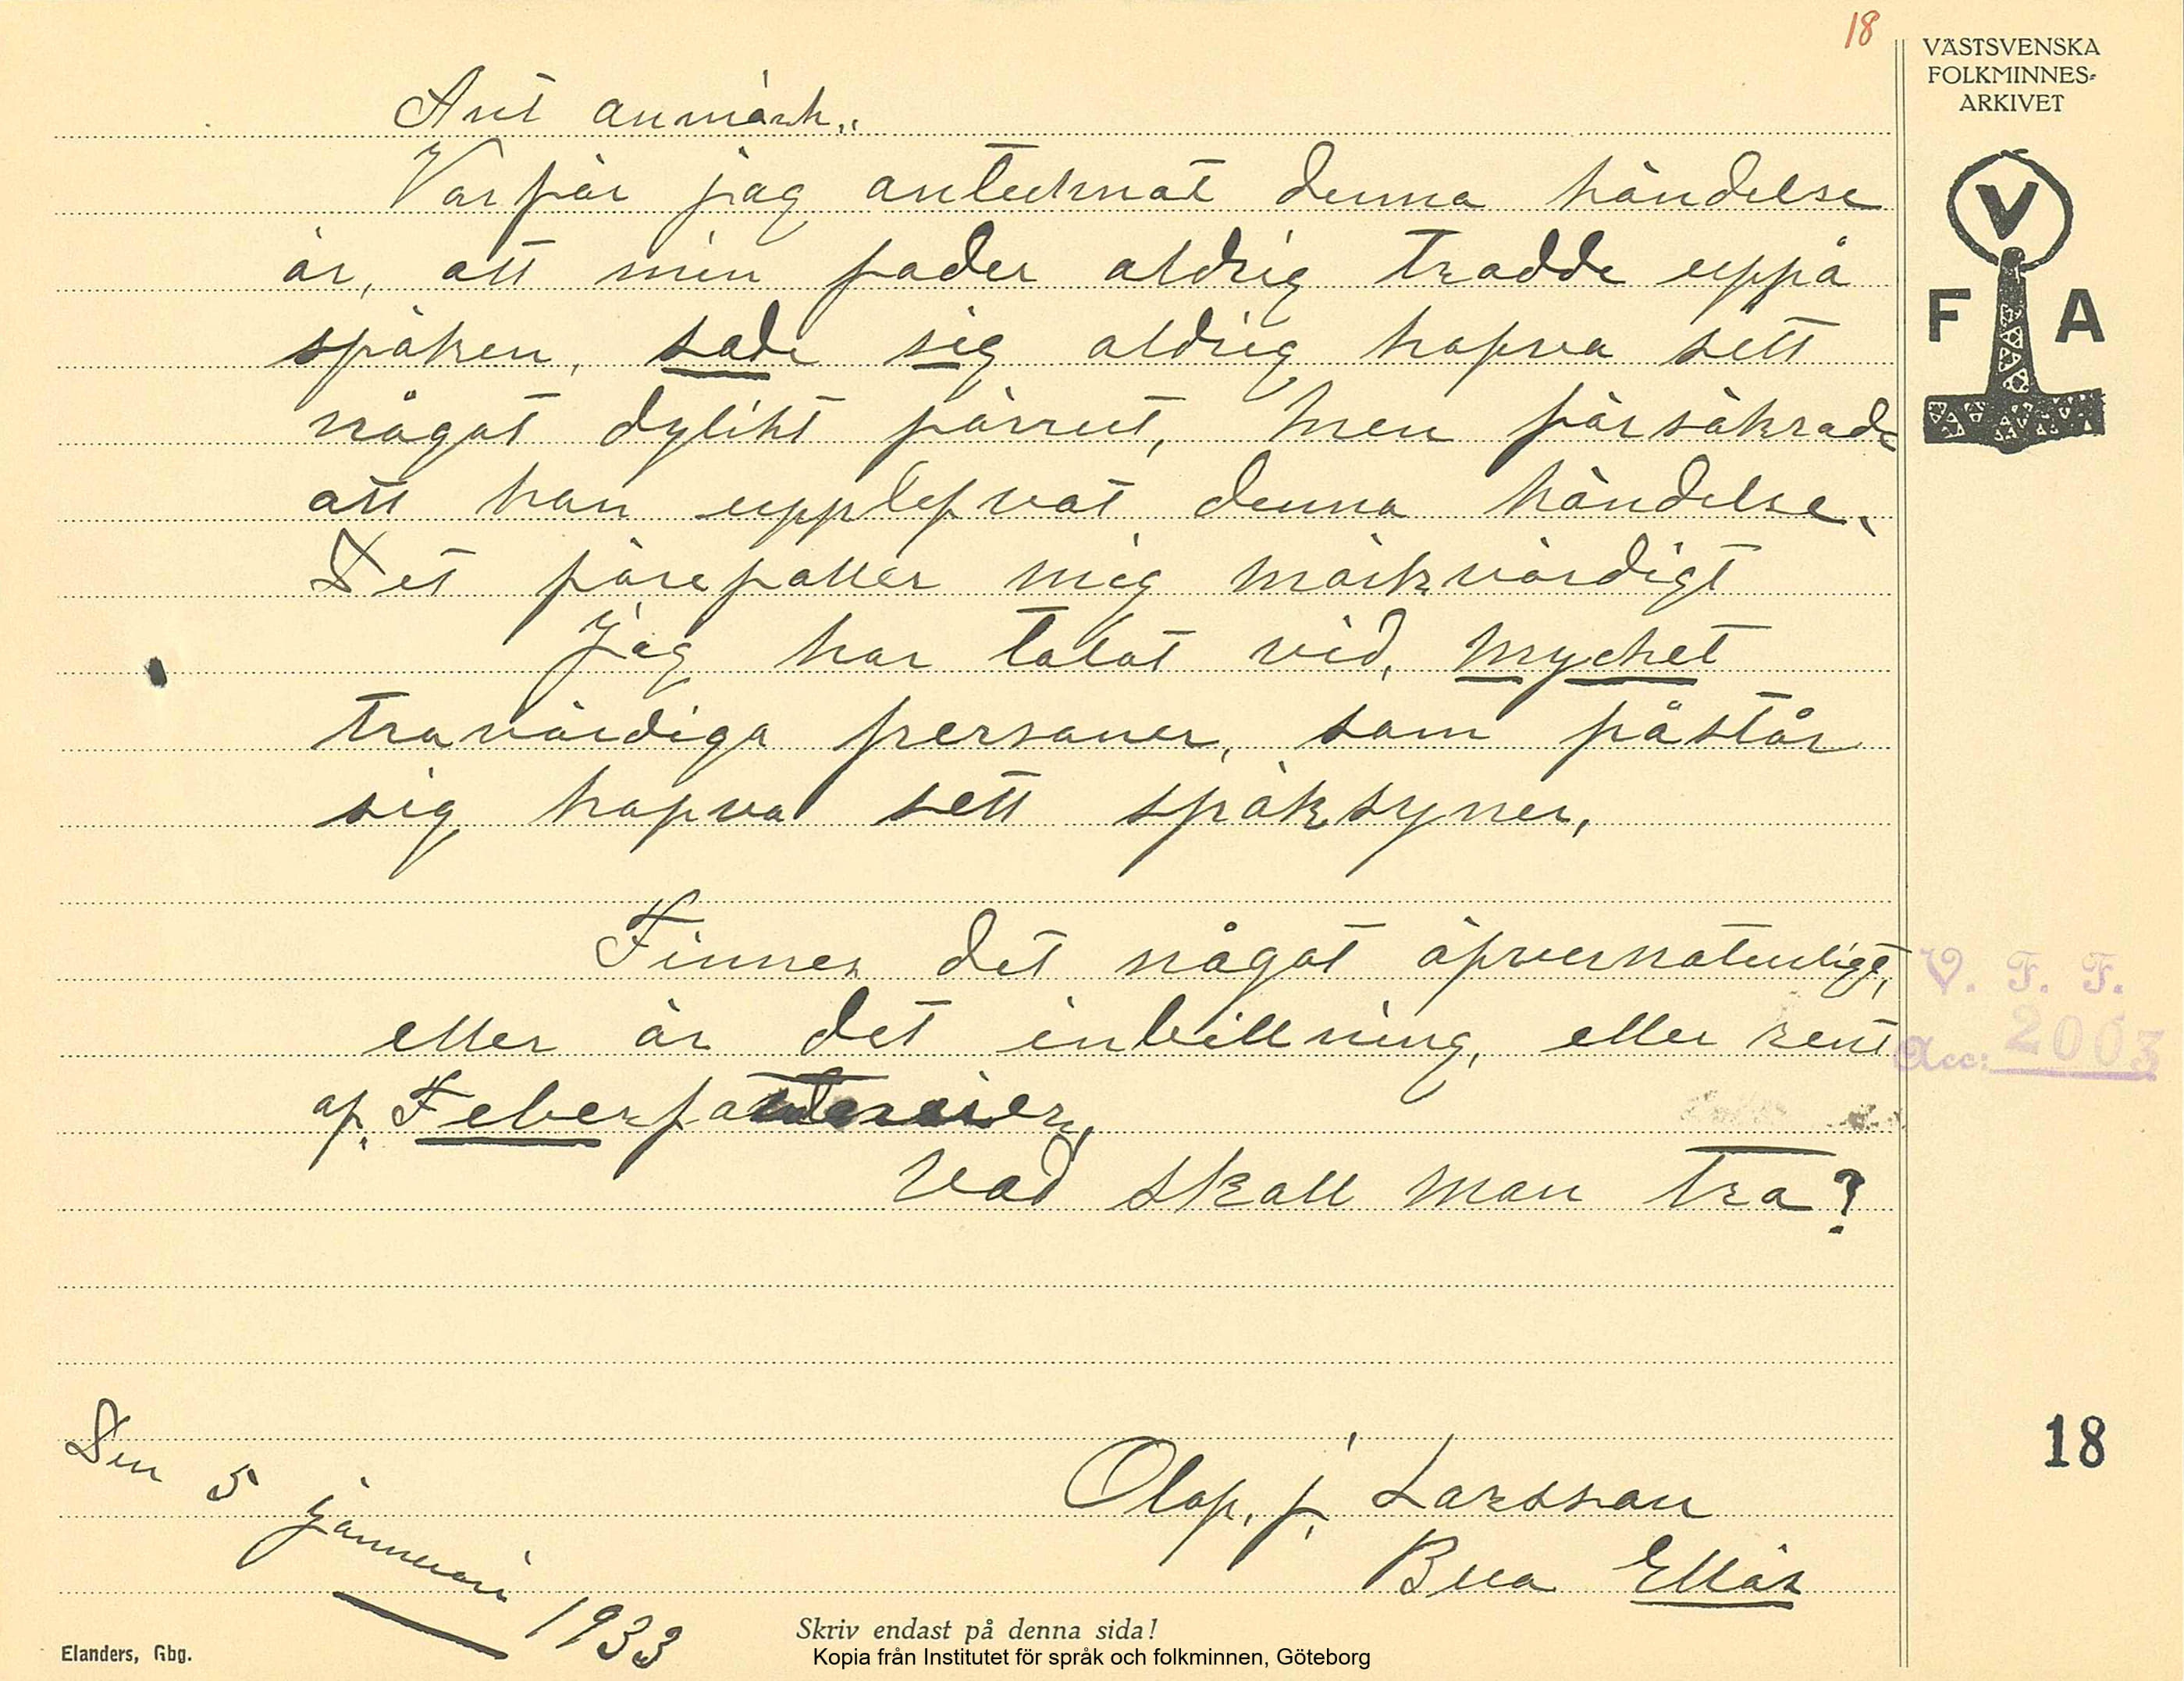 18
VÄSTSVENSKA
FOLKMINNES-
ARKIVET
V
F A
Ant anmärk..
Varför jag antecknat denna händelse
är, att min fader aldrig trodde uppå
spöken, sade sig aldrig hafva sett
något dylikt förrut, men försäkrade
att han upplefvat denna händelse.
Det förefaller mig märkvärdigt
Jag har talat vid, mycket
trovärdiga personer, som påstår
sig hafva sett spöksyner,
Finnes det något öfvernaturligt,
eller är det inbillning, eller rent
af, Feberfantasier,
Vad skall man tro?
V. F. F.
Acc: 2003
18
Den 5 januari 1933
Olof. j. Larsson
Bua Ellös
Skriv endast på denna sida!
Elanders, Gbg.
Kopia från Institutet för språk och folkminnen, Göteborg